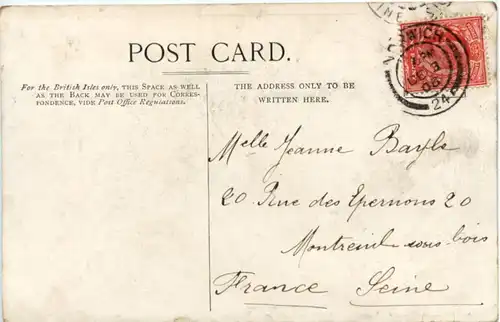 POST CARD.
For the British Isles only, THIS SPACE AS WELL
AS THE BACK MAY BE USED FOR CORRES-
PONDENCE, VIDE Post Office Regulations.
THE ADDRESS ONLY TO BE
WRITTEN HERE.
NORWICH
Melle Jeanne Bayls
20 Rue des Epernons 20
Montreuil sous-bois
France Seine